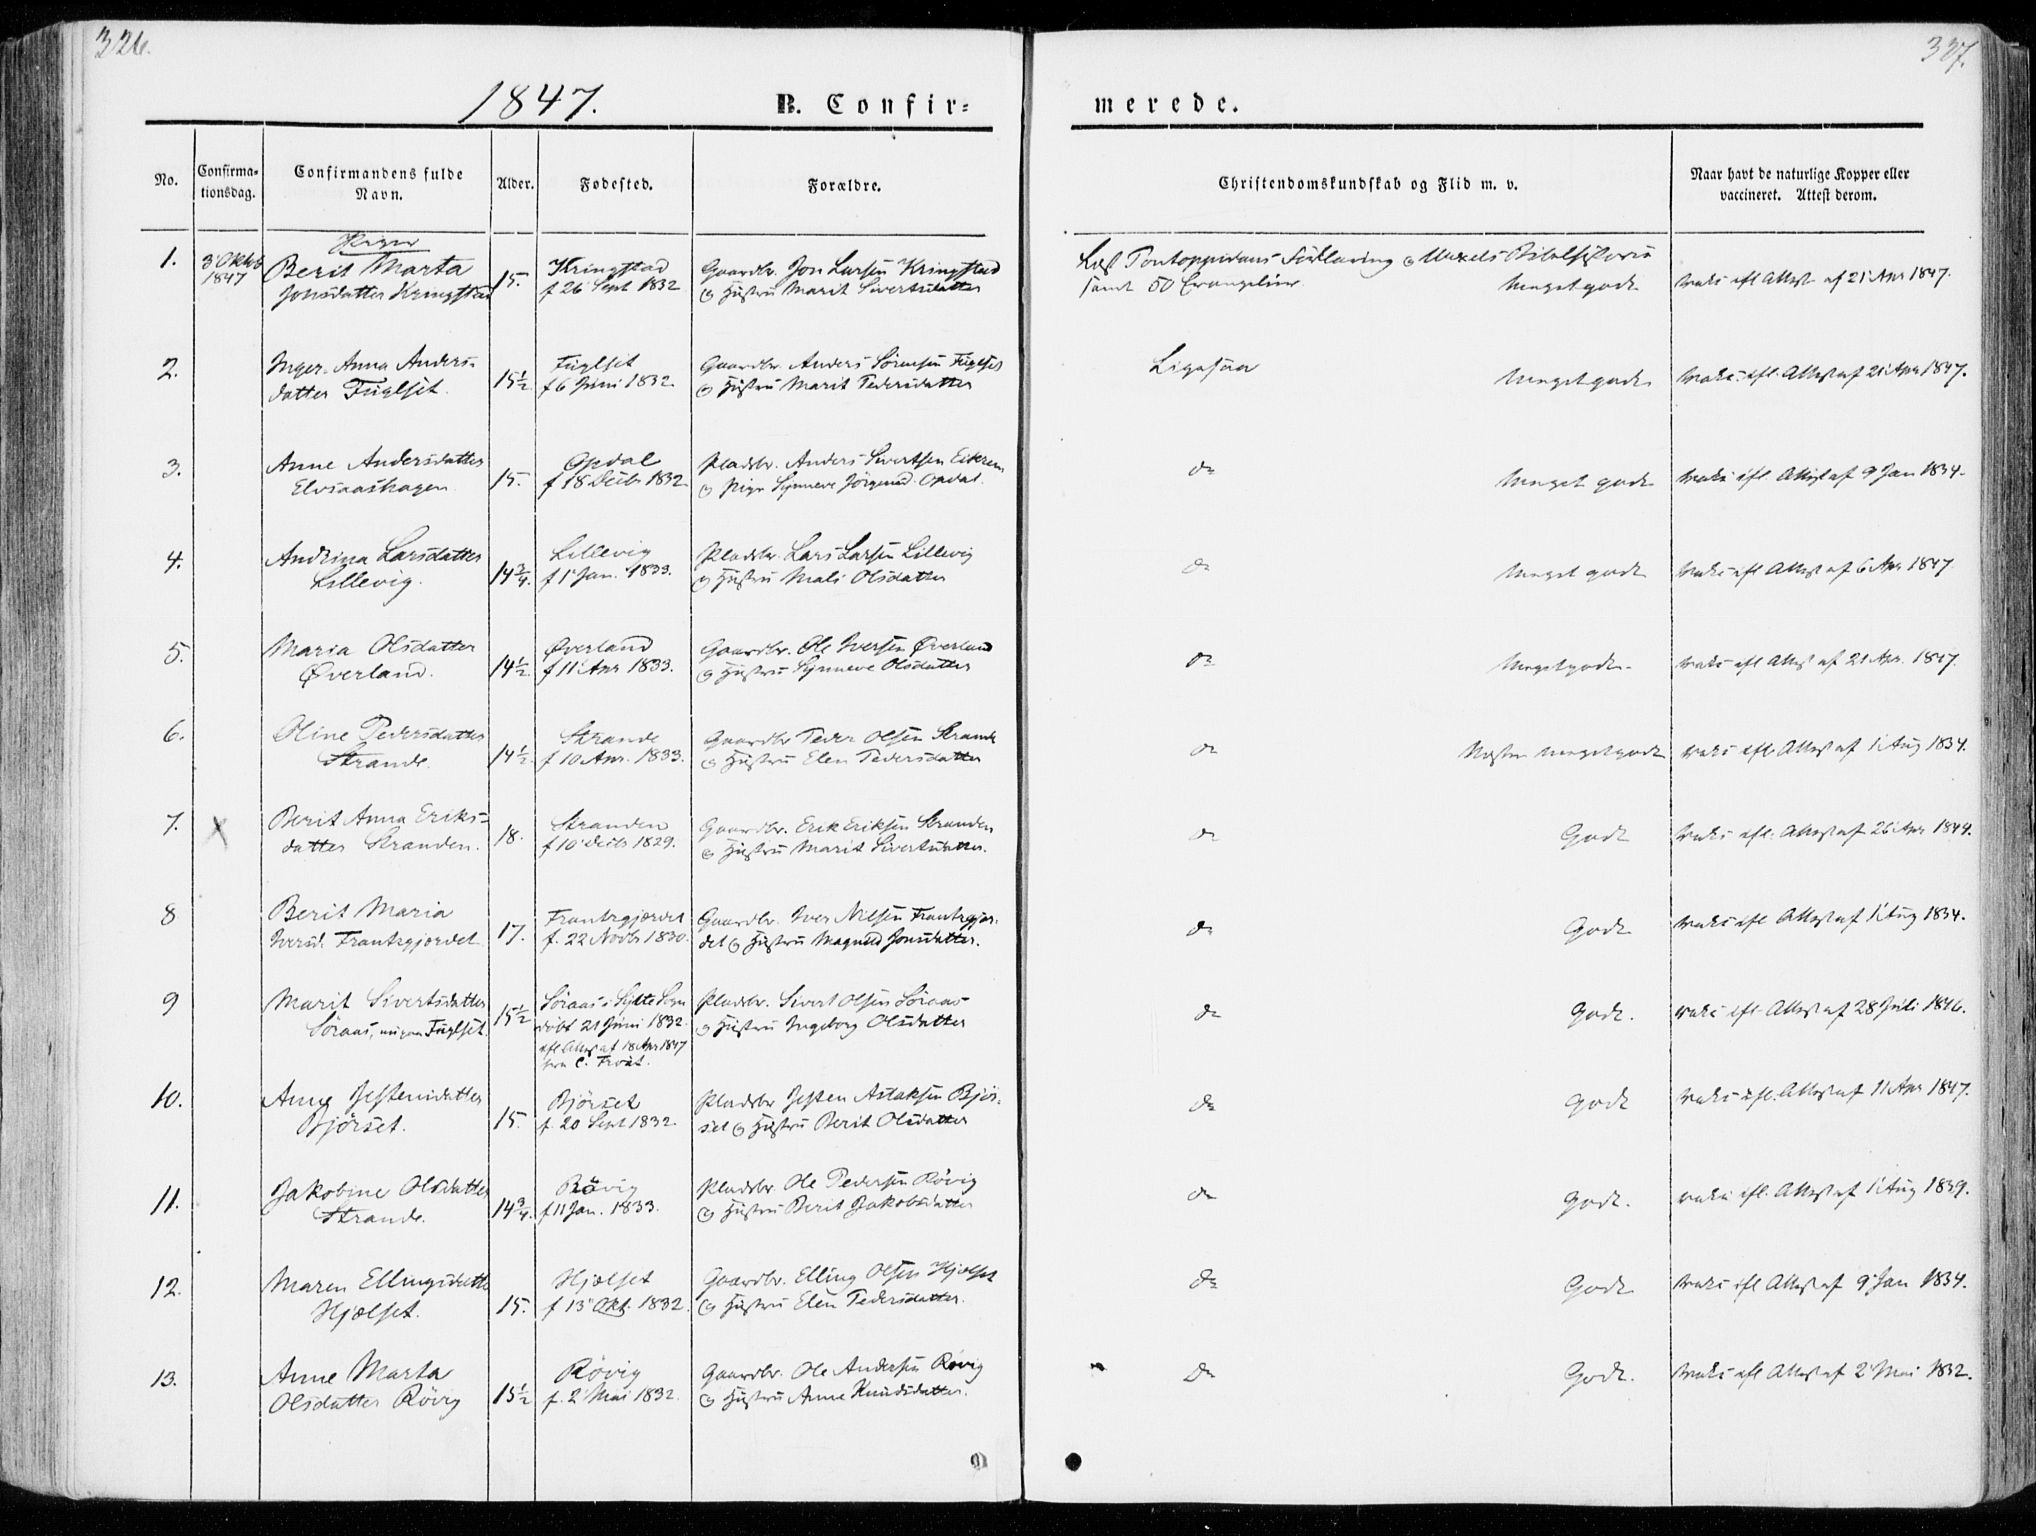 326.
327.
1847.
B. Confir=
merede.
No.
Confirma=
tionsdag.
Confirmandens fulde
Navn.
Alder.
Fødested.
Forældre.
Christendomskundskab og Flid m. v.
Naar havt de naturlige Kopper eller
vaccineret. Attest derom.
Piger
1.
3 Oktob
1847
Berit Marta
Jonsdatter Kringstad
15.
Kringstad
f 26 Sept 1832
Gaardbr. Jon Larsen Kringstad
og Hustru Marit Sivertsdatter
Læst Pontoppidans Forklaring og Bibelhistorie
samt 50 Evangelier.
Meget godt
vaks ifl Attest af 21 Apr 1847.
2.
Inger Anna Anders=
datter Fuglset.
15½
Fuglset
f 6 Juni 1832
Gaardbr. Anders Sörensen Fuglset
og Hustru Marit Pedersdatter
Ligesaa
Meget godt
vaks ifl. Attest af 21 Apr 1847.
3.
Anne Andersdatter
Elvsaashagen
15.
Opdal
f 18 Decbr 1832
Pladsbr. Anders Sivertsen Eikrem
og Pige Synneve Jörgensd. Opdal.
do
Meget godt
vaks ifl. Attest af 9 Jan 1834.
4.
Andrina Larsdatter
Lillevig.
14¾.
Lillevig
f 1 Jan. 1833.
Pladsbr. Lars Larsen Lillevig
og Hustru Mali Olsdatter
do
Meget godt
vaks ifl Attest af 6 Apr 1847
5.
Maria Olsdatter
Øverland.
14½
Øverland
f 11 Apr 1833.
Gaardbr. Ole Iversen Øverland
og Hustru Synneve Olsdatter
do
Meget godt
vaks ifl Attest af 21 Apr. 1847.
6.
Oline Pedersdatter
Strande.
14½
Strande
f 10 Apr. 1833.
Gaardbr Peder Olsen Strande
og Hustru Elen Pedersdatter
do
Næsten meget godt
vaks ifl. Attest af 1 Aug 1834.
7.
X
Berit Anna Eriks=
datter Stranden.
18.
Stranden
f 10 Decbr 1829.
Gaardbr. Erik Eriksen Stranden
og Hustru Marit Sivertsdatter.
do
Godt
vaks ifl. Attest af 26 Apr 1844.
8
Berit Maria
Iversd. Frantsgjærdet
17.
Frantsgjærdet
f. 22 Novbr 1830.
Gaardbr. Iver Nilsen Frantsgjær=
det og Hustru Magnild Jonsdatter.
do
Godt
vaks ifl Attest af 1 Aug 1834.
9
Marit Sivertsdatter
Söraas, Fuglset
15½
Söraas i Sylte Sogn
döbt 21 Juni 1832.
ifl Attest af 18 Apr 1847
fra C.
Pladsbr. Sivert Olsen Söraas
og Hustru Ingeborg Olsdatter
do
Godt.
vaks ifl. Attest af 28 Juli 1846.
10.
Anne Jestensdatter
Bjørset.
15.
Bjørset
f. 20 Sept 1832.
Pladsbr Jesten Aslaksen Bjør=
set og Hustru Berit Olsdatter
do
Godt
vaks ifl. Attest af 11 Apr 1847.
11.
Jakobine Olsdatter
Strande.
14¾.
Rövig
f 11 Jan. 1833.
Pladsbr. Ole Pedersen Rövig
og Hustru Berit Jakobsdatter
do
Godt.
vaks ifl. Attest af 1 Aug 1839.
12.
Maren Ellingsdatter
Hjælset.
15.
Hjælset
f 13 Okt. 1832.
Gaardbr. Elling Olsen Hjælset
og Hustru Elen Pedersdatter.
do
Godt
vaks ifl Attest af 9 Jan 1834.
13.
Anne Marta
Olsdatter Rövig
15½
Rövig
f. 2 Mai 1832.
Gaardbr. Ole Andersen Rövig
og Hustru Anne Knudsdatter.
Do
Godt.
vaks ifl Attest af 2 Mai 1832.